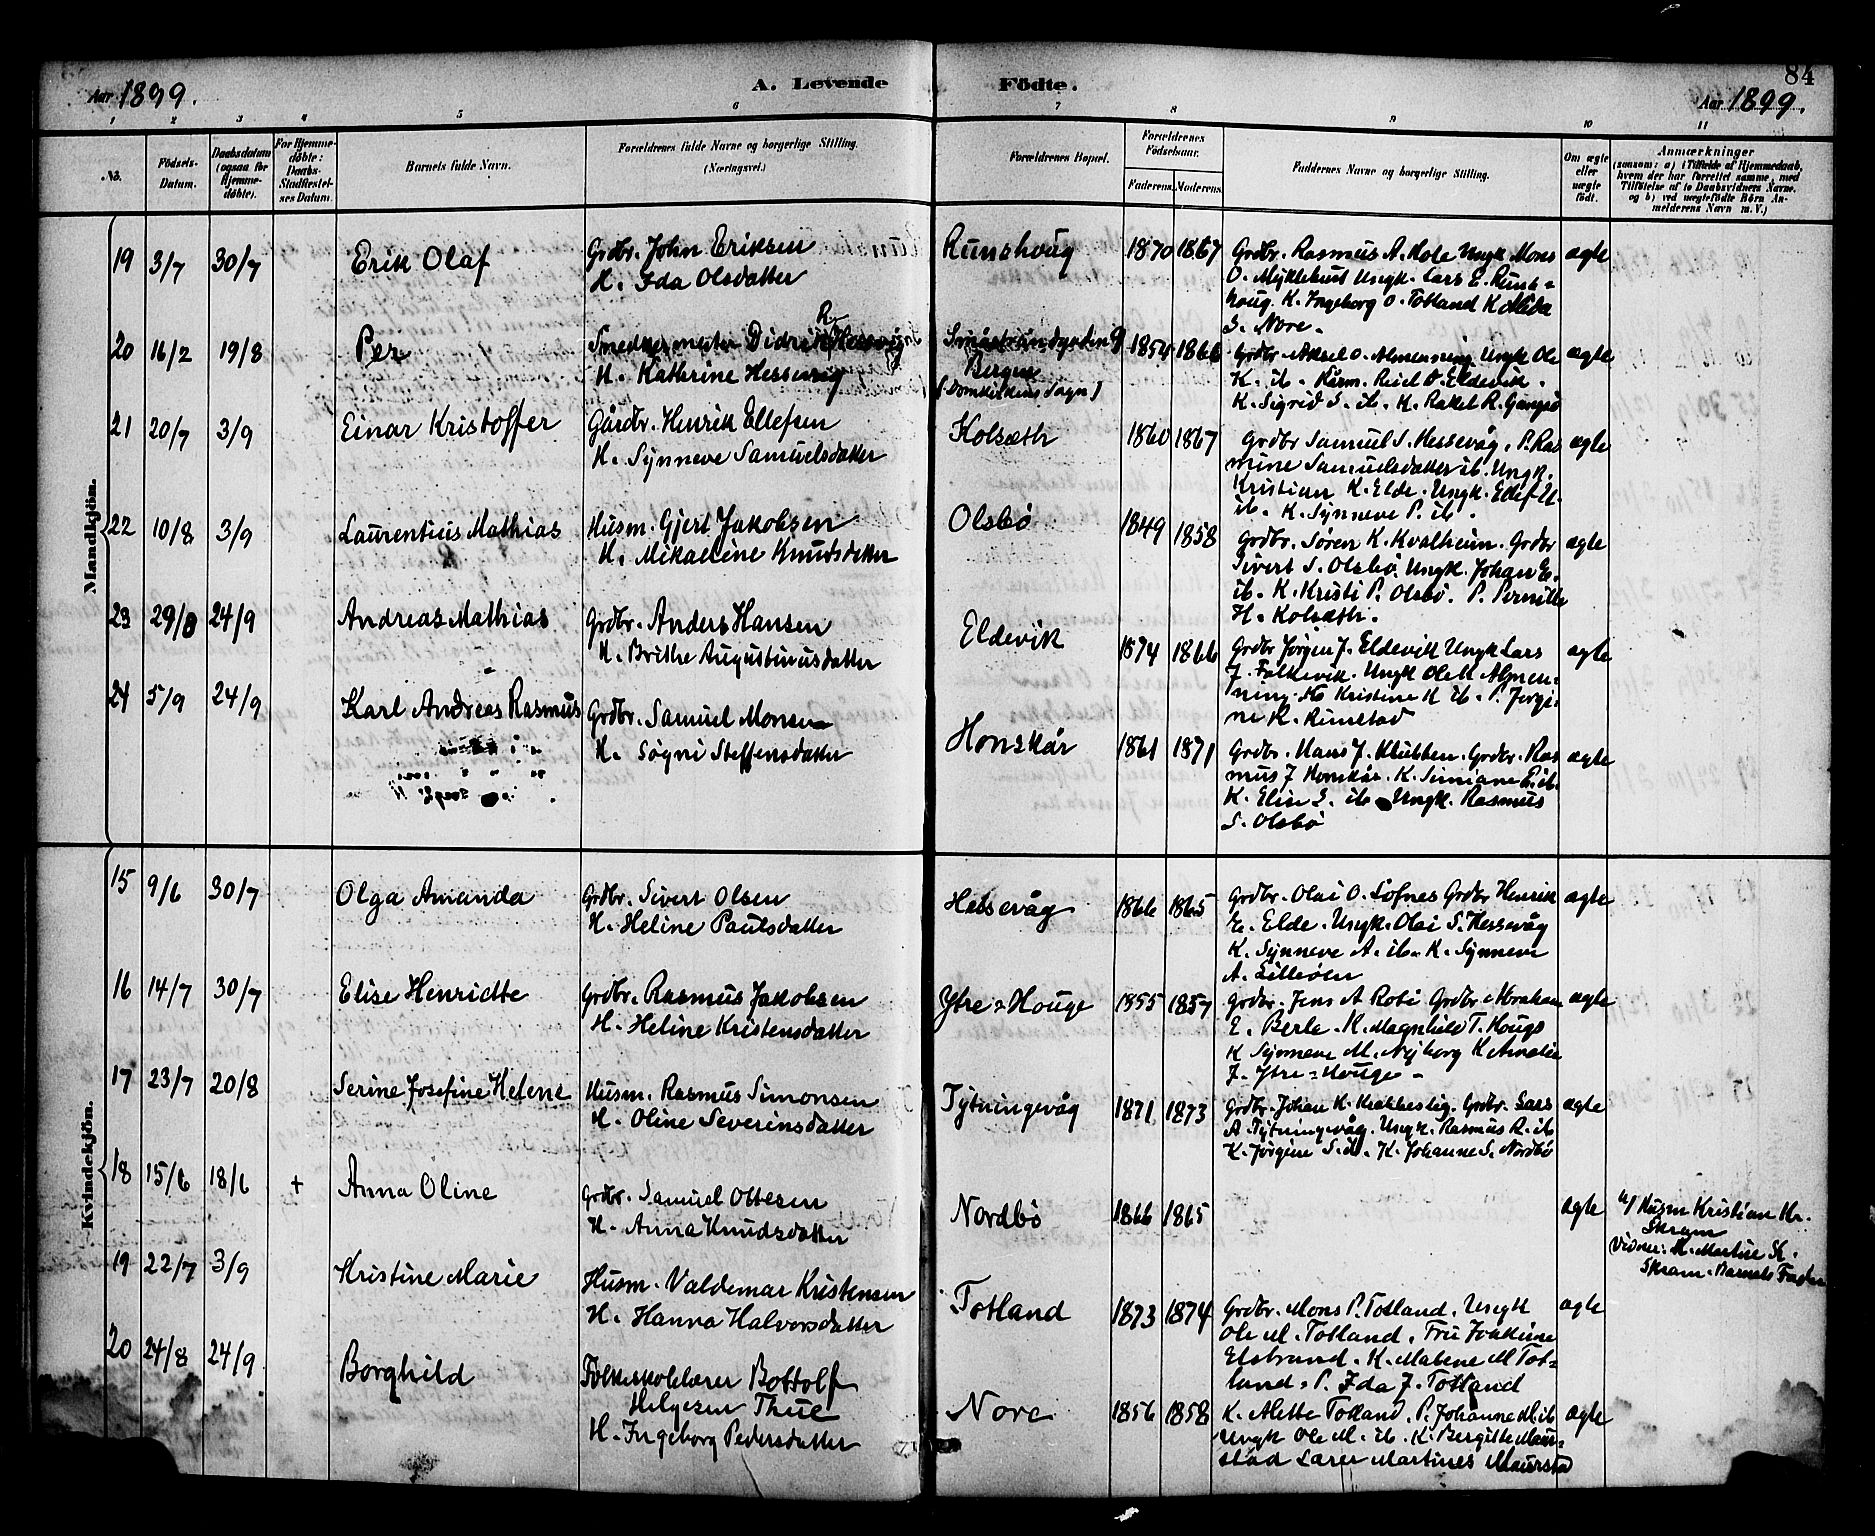 84
Aar 1899.
A. Levende
Födte.
Aar 1899.
1 2 3 4 5 6 7 8 9 10 11
No.
Födsels-
Datum.
Daabsdatum
(ogsaa for
Hjemme-
döbte).
For Hjemme-
döbte:
Daabs-
Stadfæstel-
ses Datum.
Barnets fulde Navn.
Forældrenes fulde Navne og borgerlige Stilling.
(Næringsvei.)
Forældrenes Bopæl.
Forældrenes
Födselsaar.
Faderens. Moderens.
Faddernes Navne og borgerlige Stilling.
Om ægte
eller
uægte
født.
Anmærkninger
(saasom: a) i Tilfælde af Hjemmedaab,
hvem der har forrettet samme, med
Tilföielse af to Daabsvidners Navne,
og b) ved uægtefödte Börn An-
melderens Navn m. V.)
Mandkjön.
19 3/7 30/7 Erik Olaf
Grdbr. John Eriksen
H. Ida Olsdatter
Runshoug 1870 1867
Grdbr. Rasmus A. Hole Ungk Mons
O. Myklebust Ungk. Lars E. Runs=
houg. K. Ingeborg O. Totland K
S. Nore.
ægte
20 16/2 19/8 Per
Smedkermester Didrik Hessevig
H. Kathrine Hessevig
Småstrandgaden 9
Bergen
(Domkirkens sogn)
1854 1866
Grdbr. Aksel O. Almenning Ungk Ole
K. ib. Reiel O. Eldevik.
K. Sigrid S. ib. K. Rakel R. Gangsö
ægte
21 20/7 3/9 Einar Kristoffer
Gårdbr. Henrik Ellefsen
H. Synneve Samuelsdatter
Kolsæth 1860 1867
Grdbr Samuel S. Hessevåg. P. Ras
mine Samuelsdatter ib. Ungk.
Kristian K. Elde. Ungk. Ellef H.
ib. K. Synneve P. ib.
ægte
22 10/8 3/9 Laurentius Mathias
Husm. Gjert Jakobsen
H. Mikaeline Knudsdatter
Olsbö 1849 1858
Grdbr. Sören K. Kvalheim. Grdbr
Sivert S. Olsbö. Ungk. Johan E.
ib. K. Kristi P. Olsbö. P. Pernille
H. Kolsæth.
ægte
23 29/8 24/9 Andreas Mathias
Grdbr. Anders Hansen
H. Brithe Augustinusdatter
Eldevik 1874 1866
Grdbr Jörgen J. Eldevik Ungk Lars
J. Falkevik. Ungk Ole K Almen-
ning. Kristine K ib. P. Jorgi-
ne R. Rimstad
ægte
24 5/9 24/9 Karl Andreas Rasmus
Grdbr. Samuel Monsen
H. Søgni Steffensdatter
Honskår 1861 1871
Grdbr. Hans J. Klubben. Grdbr. Ras
mus J Honskår. K. Simiane E. ib.
K. Elise S. ib. Ungk. Rasmus
S. Olsbö
ægte
Kvindekjön.
15 9/6 30/7 Olga Amanda
Grdbr. Sivert Olsen
H. Heline Paulsdatter
Hessevåg 1866 1865
Grdbr. Olai O. Lofnes Grdbr Henrik
E. Elde. Ungk. Olai S. Hessevåg
K. Synneve A. ib. K. Synneve
A. Lilleöen
ægte
16 14/7 30/7 Elise Henridte
Grdbr. Rasmus Jakobsen
H. Heline Kristensdatter
Ytre=Houge 1855 1857
Grdbr. Jens A Robi Grdbr Abraham
E. Berle. K. Magnhild T. Houge
K Synneve M. Nyborg K Amalie
J. Ytre=Houge.
ægte
17 23/7 20/8 Serine Josefine Helene
Husm. Rasmus Simonsen
H. Oline Severinsdatter
Tytningevåg 1871 1873
Grdbr. Johan K. Krabbestig. Grdbr. Lars
A. Tytningevåg. Ungk. Rasmus R. ib
K. Jørgine S. ib. K. Johanne S. Nordbö
ægte
18 15/6 18/6 + Anna Oline
Grdbr. Samuel Ottesen
H. Anna Knudsdatter
Nordbö 1866 1865
ægte
a/ Husm Kristian Kr.
Skram
Vidner: H. Martine Sk.
Skram. Barnets Fader
19 22/7 3/9 Kristine Marie
Husm. Valdemar Kristensen
H. Hanna Halvorsdatter
Totland 1873 1874
Grdbr. Mons P. Totland. Ungk
Ole M. Totland. Fru Joakime
Elstrand. K. Malene M Tot=
land. P. Ida J. Totland
ægte
20 24/8 24/9 Borghild
Folkeskolelærer Bottolf
Helgesen Thue
H. Ingeborg Pedersdatter
Nore 1856 1858
K. Alette Totland. P. Johanne M. ib
Ungk Ole M. ib. K. Bergitte Maur=
stad Lærer Martines Maurstad
ægte